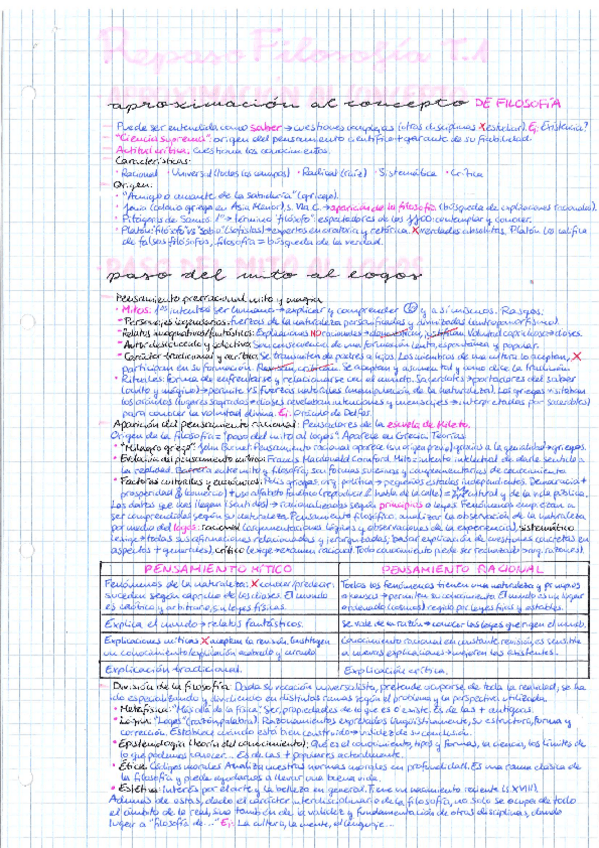 Repaso Filosofía T.1
APROXIMACIÓN AL CONCEPTO
aproximación al concepto DE FILOSOFÍA
Puede ser entendida como saber → cuestiones complejas (otras disciplinas X estudiar). Ej: Existencia?
"Ciencia suprema": origen del pensamiento científico + garante de su fiabilidad.
Actitud crítica: cuestiona los conocimientos.
Características:
· Racional · Universal (todos los campos) · Radical (raíz) · Sistemática · Crítica
Origen:
· "Amigo o amante de la sabiduría" (griego).
· Jonia (colonia griega en Asia Menor), s. VI a. C. → aparición de la filosofía (búsqueda de explicaciones racionales).
· Pitágoras de Samos 1º → término "filósofo": espectadores de los JJOO: contemplar y conocer.
· Platón: filósofo vs "sabio" (sofistas) → expertos en oratoria y retórica. X verdades absolutas. Platón los califica
de falsos filósofos, filosofía = búsqueda de la verdad.
PASO DEL MITO AL LOGOS
paso del mito al logos
Pensamiento prerracional: mito y magia
· Mitos: 1os intentos ser humano → explicar y comprender y a sí mismos. Rasgos:
· Personajes legendarios: fuerzas de la naturaleza personificadas y divinizadas (antropomorfismo).
· Relatos imaginativos/fantásticos: Explicaciones NO racionales
Voluntad caprichosa → dioses.
· Autor desconocido y colectivo: Son consecuencia de una formación lenta, espontánea y popular.
· Carácter tradicional y acrítico: Se transmiten de padres a hijos. Los miembros de una cultura lo aceptan, X
participan en su formación. Se aceptan y asumen tal y como dice la tradición
· Rituales: forma de enfrentarse y relacionarse con el mundo. Sacerdotes → portadores del saber
(culto y mágico) → permite vs fuerzas naturales (manipulación de la naturaleza). Los griegos → visitan
los oráculos (lugares sagrados → dioses revelaban intenciones y mensajes → interpretados por sacerdotes)
para conocer la voluntad divina. Ej: Oráculo de Delfos.
Aparición del pensamiento racional: Pensadores de la escuela de Mileto.
Origen de la filosofía = "paso del mito al logos". Aparece en Grecia. Teorías
· "Milagro griego": John Burnet. Pensamiento racional aparece (sin origen previo) gracias a la genialidad → griegos.
· Evolución del pensamiento mítico: Francis Macdonald Cornford. Mito = intento intelectual de darle sentido a
la realidad. Barrera entre mito y filosofía, son formas sucesivas y complementarias de conocimiento.
· Factores culturales y económicos: Polis griegas: org. política → pequeños estados independientes. Democracia +
prosperidad ($ comercio) + uso alfabeto fonético (reproduce el habla de la calle) = cultural y de la vida pública.
Los datos que nos llegan (sentidos) → racionalizados según principios o leyes. Fenómenos empiezan a
ser comprendidos según su naturaleza. Pensamiento filosófico: analizar la observación de la naturaleza
por medio del logos: racional (argumentaciones lógicas y observaciones de la experiencia), sistemático
(exige → todas sus afirmaciones relacionadas y jerarquizadas; basar explicación de cuestiones concretas en
aspectos + generales), crítico (exige → examen racional. Todo conocimiento puede ser rechazado → arg. razones).
PENSAMIENTO MÍTICO
PENSAMIENTO RACIONAL
Fenómenos de la naturaleza: X conocer/predecir.
suceden según capricho de los dioses. El mundo
es caótico y arbitrario, sin leyes físicas.
Todos los fenómenos tienen una naturaleza y principios
propios → permiten su conocimiento. El mundo es un lugar
ordenado (cosmos) regido por leyes fijas y estables.
Explica el mundo → relatos fantásticos.
Se vale de la razón → conocer las leyes que rigen el mundo.
Explicaciones míticas X aceptan la revisión, constituyen
un conocimiento/explicación acabado y cerrado
Conocimiento racional en constante revisión, es sensible
a nuevas explicaciones → mejoren las existentes.
Explicación tradicional.
Explicación crítica.
División de la filosofía: Dada su vocación universalista, pretende ocuparse de toda la realidad, se ha
ido especializando y dividiendo en distintas ramas según el problema y la perspectiva utilizada.
· Metafísica: "Más allá de la física". Ser, propiedades de lo que es o existe. Es de las + antiguas.
· Lógica: "Logos" (razón/palabra). Razonamientos expresados lingüísticamente, su estructura, forma y
corrección. Establece cuando está bien construido → validez de su conclusión.
· Epistemología (teoría del conocimiento): Qué es el conocimiento, tipos y formas, la ciencia, los límites de
lo que podemos conocer. Es de las + populares actualmente.
· Ética: Códigos morales. Analiza nuestras normas morales en profundidad. Es una rama clásica de
la filosofía y puede ayudarnos a llevar una buena vida.
· Estética: Interés por el arte y la belleza en general. Tiene un nacimiento reciente (s. XVIII).
Además de estas, dado el carácter interdisciplinario de la filosofía, no solo se ocupa de todo
el ámbito de lo real, sino también de la validez y fundamentación de otras disciplinas, dando
lugar a "filosofía de ..." Ej: La cultura, la mente, el lenguaje...